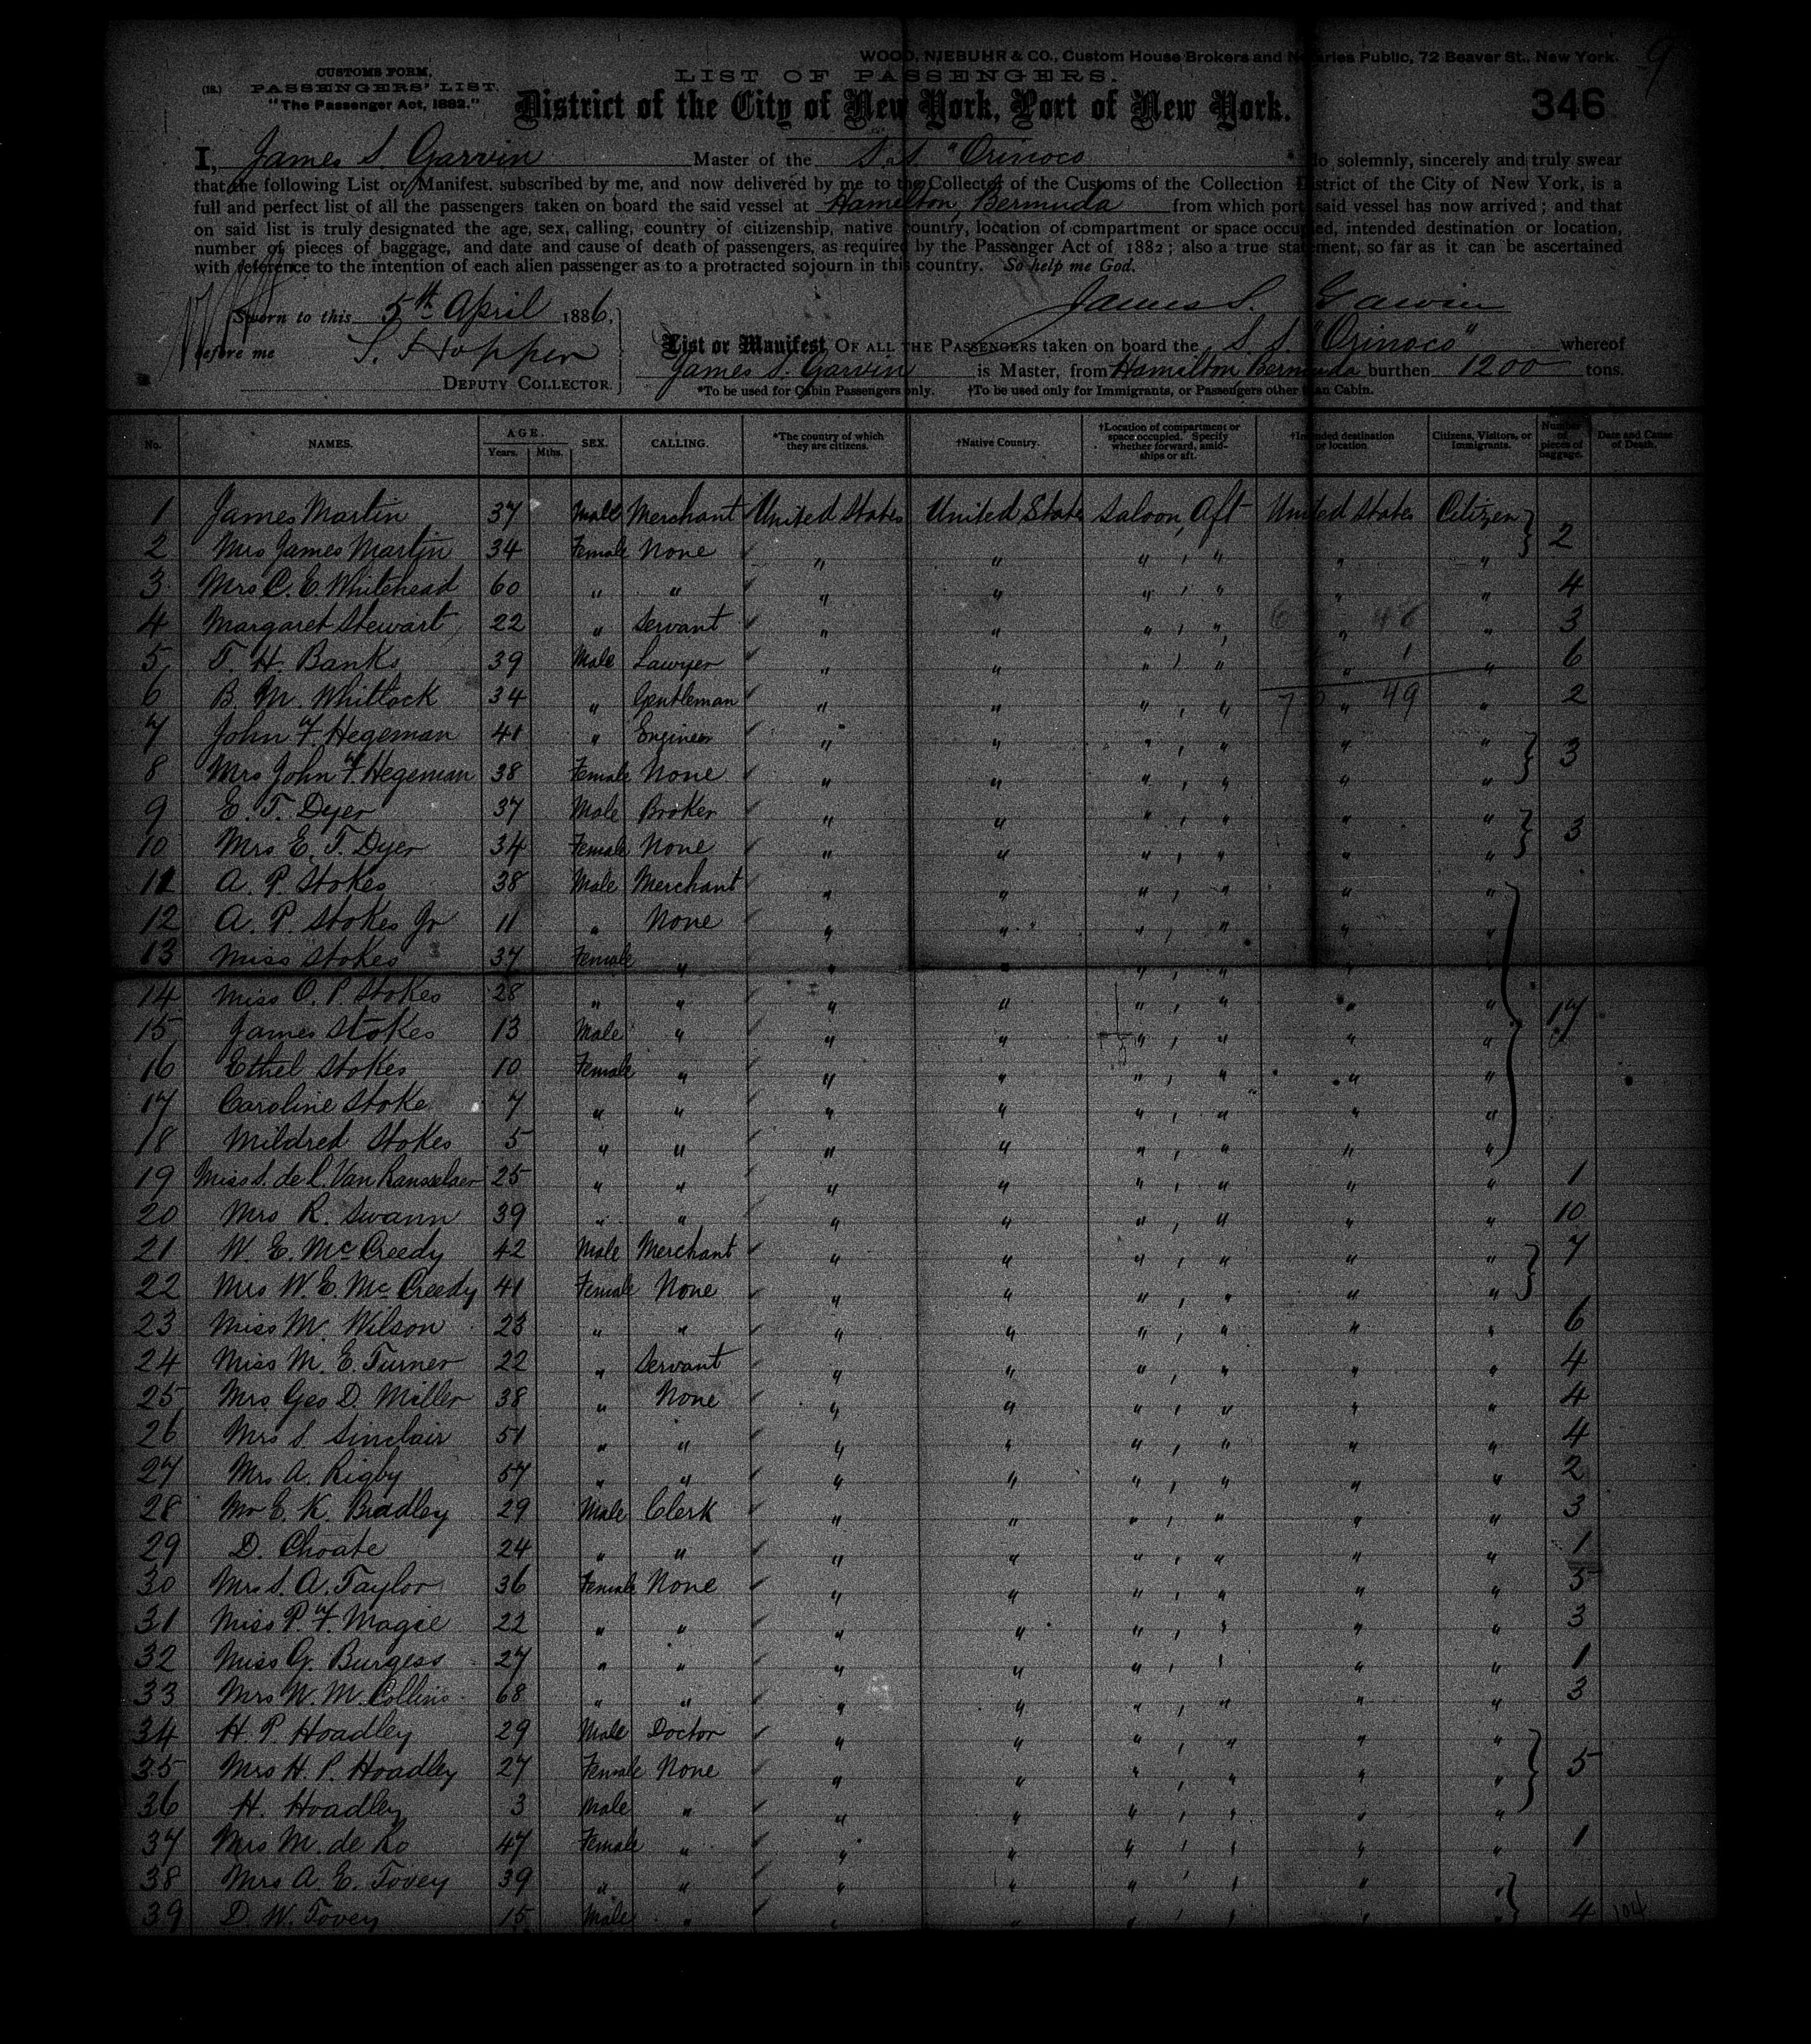 WOOD, NIEBUHR & CO., Custom House Brokers and Notaries Public, 72 Beaver St., New York. 9
CUSTOMS FORM,
(18.) PASSENGERS' LIST.
"The Passenger Act, 1882."
LIST OF PASSENGERS.
District of the City of New York, Port of New York.
346
I, James S. Garvin Master of the S.S. "Orinoco do solemnly, sincerely and truly swear
that the following List or Manifest, subscribed by me, and now delivered by me to the Collector of the Customs of the Collection District of the City of New York, is a
full and perfect list of all the passengers taken on board the said vessel at Hamelton, Bermuda from which port said vessel has now arrived; and that
on said list is truly designated the age, sex, calling, country of citizenship, native country, location of compartment or space occupied, intended destination or location,
number of pieces of baggage, and date and cause of death of passengers, as required by the Passenger Act of 1882; also a true statement, so far as it can be ascertained
with reference to the intention of each alien passenger as to a protracted sojourn in this country. So help me God.
James S. Garvin
Sworn to this 5th April 1886,
before me S. Hopper
DEPUTY COLLECTOR.
List or Manifest OF ALL THE PASSENGERS taken on board the S.S. "Orinoco" whereof
James S. Garvin is Master, from Hamilton Bermuda burthen 1200 tons.
*To be used for Cabin Passengers only. †To be used only for Immigrants, or Passengers other than Cabin.
No. NAMES. AGE. Years. Mths. SEX. CALLING. *The country of which they are citizens. †Native Country. †Location of compartment or space occupied. Specify whether forward, amidships or aft. †Intended destination or location. Citizens, Visitors, or Immigrants. Number of pieces of baggage. Date and Cause of Death.
1 James Martin 37 Male Merchant United States United State Saloon, Aft United States Citizen
2 Mrs James Martin 34 Female None " " " , " " " 2
3 Mrs C. E. Whitehead 60 " " " " " , " " " 4
4 Margaret Stewart 22 " Servant " " " , " " " 3
5 T. H. Banks 39 Male Lawyer " " " , " " " 6
6 B. M. Whitlock 34 " Gentleman " " " , " " 49 " 2
7 John F. Hegeman 41 " Engineer " " " , " " "
8 Mrs John F. Hegeman 38 Female None " " " , " " " 3
9 E. T. Dyer 37 Male Broker " " " , " " "
10 Mrs E. T. Dyer 34 Female None " " " , " " " 3
11 A. P. Stokes 38 Male Merchant " " " , " " "
12 A. P. Stokes Jr 11 " None " " " , " " "
13 Miss Stokes 37 Female " " " " , " " "
14 Miss O. P. Stokes 28 " " " " " , " " " 17
15 James Stokes 13 Male " " " " , " " "
16 Ethel Stokes 10 Female " " " " , " " "
17 Caroline Stoke 7 " " " " " , " " "
18 Mildred Stokes 5 " " " " " , " " "
19 Miss S. de L. Van Ransselaer 25 " " " " " , " " " 1
20 Mrs R. Swann 39 " " " " " , " " " 10
21 W. E. McCreedy 42 Male Merchant " " " , " " " 7
22 Mrs W. E. McCreedy 41 Female None " " " , " " "
23 Miss M. Wilson 23 " " " " " , " " " 6
24 Miss M. E. Turner 22 " Servant " " " , " " " 4
25 Mrs Geo D. Miller 38 " None " " " , " " " 4
26 Mrs S. Sinclair 51 " " " " " , " " " 4
27 Mrs A. Rigby 57 " " " " " , " " " 2
28 Mr E. K. Bradley 29 Male Clerk " " " , " " " 3
29 D. Choate 24 " " " " " , " " " 1
30 Mrs S. A. Taylor 36 Female None " " " , " " " 5
31 Miss P. F. Magie 22 " " " " " , " " " 3
32 Miss G. Burgess 27 " " " " " , " " " 1
33 Mrs W. M. Collins 68 " " " " " , " " " 3
34 H. P. Hoadley 29 Male Doctor " " " , " " "
35 Mrs H. P. Hoadley 27 Female None " " " , " " " 5
36 H. Hoadley 3 Male " " " " , " " "
37 Mrs M. de Ro 47 Female " " " " , " " " 1
38 Mrs A. E. Tovey 39 " " " " " , " " "
39 D. W. Tovey 15 Male " " " " , " " " 4 104